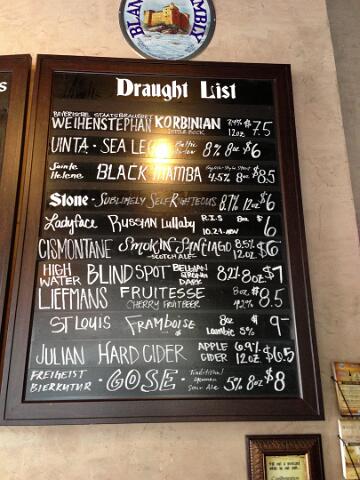 BLAN MBLY
s
Draught List
BAYERISCHE STAATSBRAUEREI
WEIHENSTEPHAN KORBINIAN 7.4% $7.5
DOPPLEBOCK 12oz
UINTA · SEA LEGS Baltic Porter 8% 8oz $6
Sainte Helene BLACK MAMBA 4.5% 8oz $8.5
Stone · SUBLIMELY SELF RIGHTEOUS 8.7% 12oz $6
Ladyface RUSSIAN Lullaby R.I.S 8oz $6
10.2%
CISMONTANE SMOKIN' SANTIAGO 8.5% $6
SCOTCH ALE 12oz
HIGH WATER BLIND SPOT BELGIAN STRONG DARK 8.2% 8oz $7
LIEFMANS FRUITESSE 8oz $8.5
CHERRY FRUIT BEER 4.2%
ST LOUIS FRAMBOISE 8oz $9-
Lambic 5%
JULIAN HARD CIDER APPLE CIDER 6.9% 12oz $6.5
FREIGEIST BIERKULTUR · GOSE · Traditional German Sour Ale 5% 8oz $8